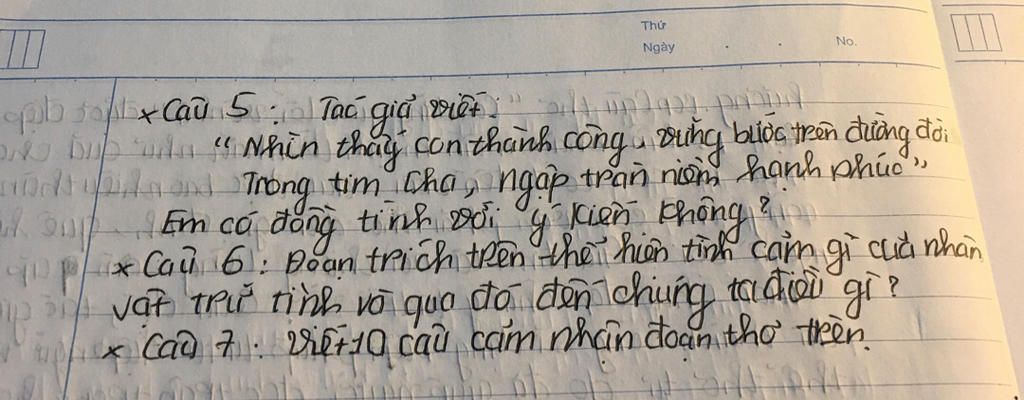 Thứ
Ngày . . No.
* Câu 5: Tác giả viết:
"Nhìn thấy con thành công, vững bước trên đường đời
Trong tim cha, ngập tràn niềm hạnh phúc"
Em có đồng tình với ý kiến không?
* Câu 6: Đoạn trích trên thể hiện tình cảm gì của nhân
vật trữ tình và qua đó đến chúng ta điều gì?
* Câu 7: Viết 10 câu cảm nhận đoạn thơ trên.